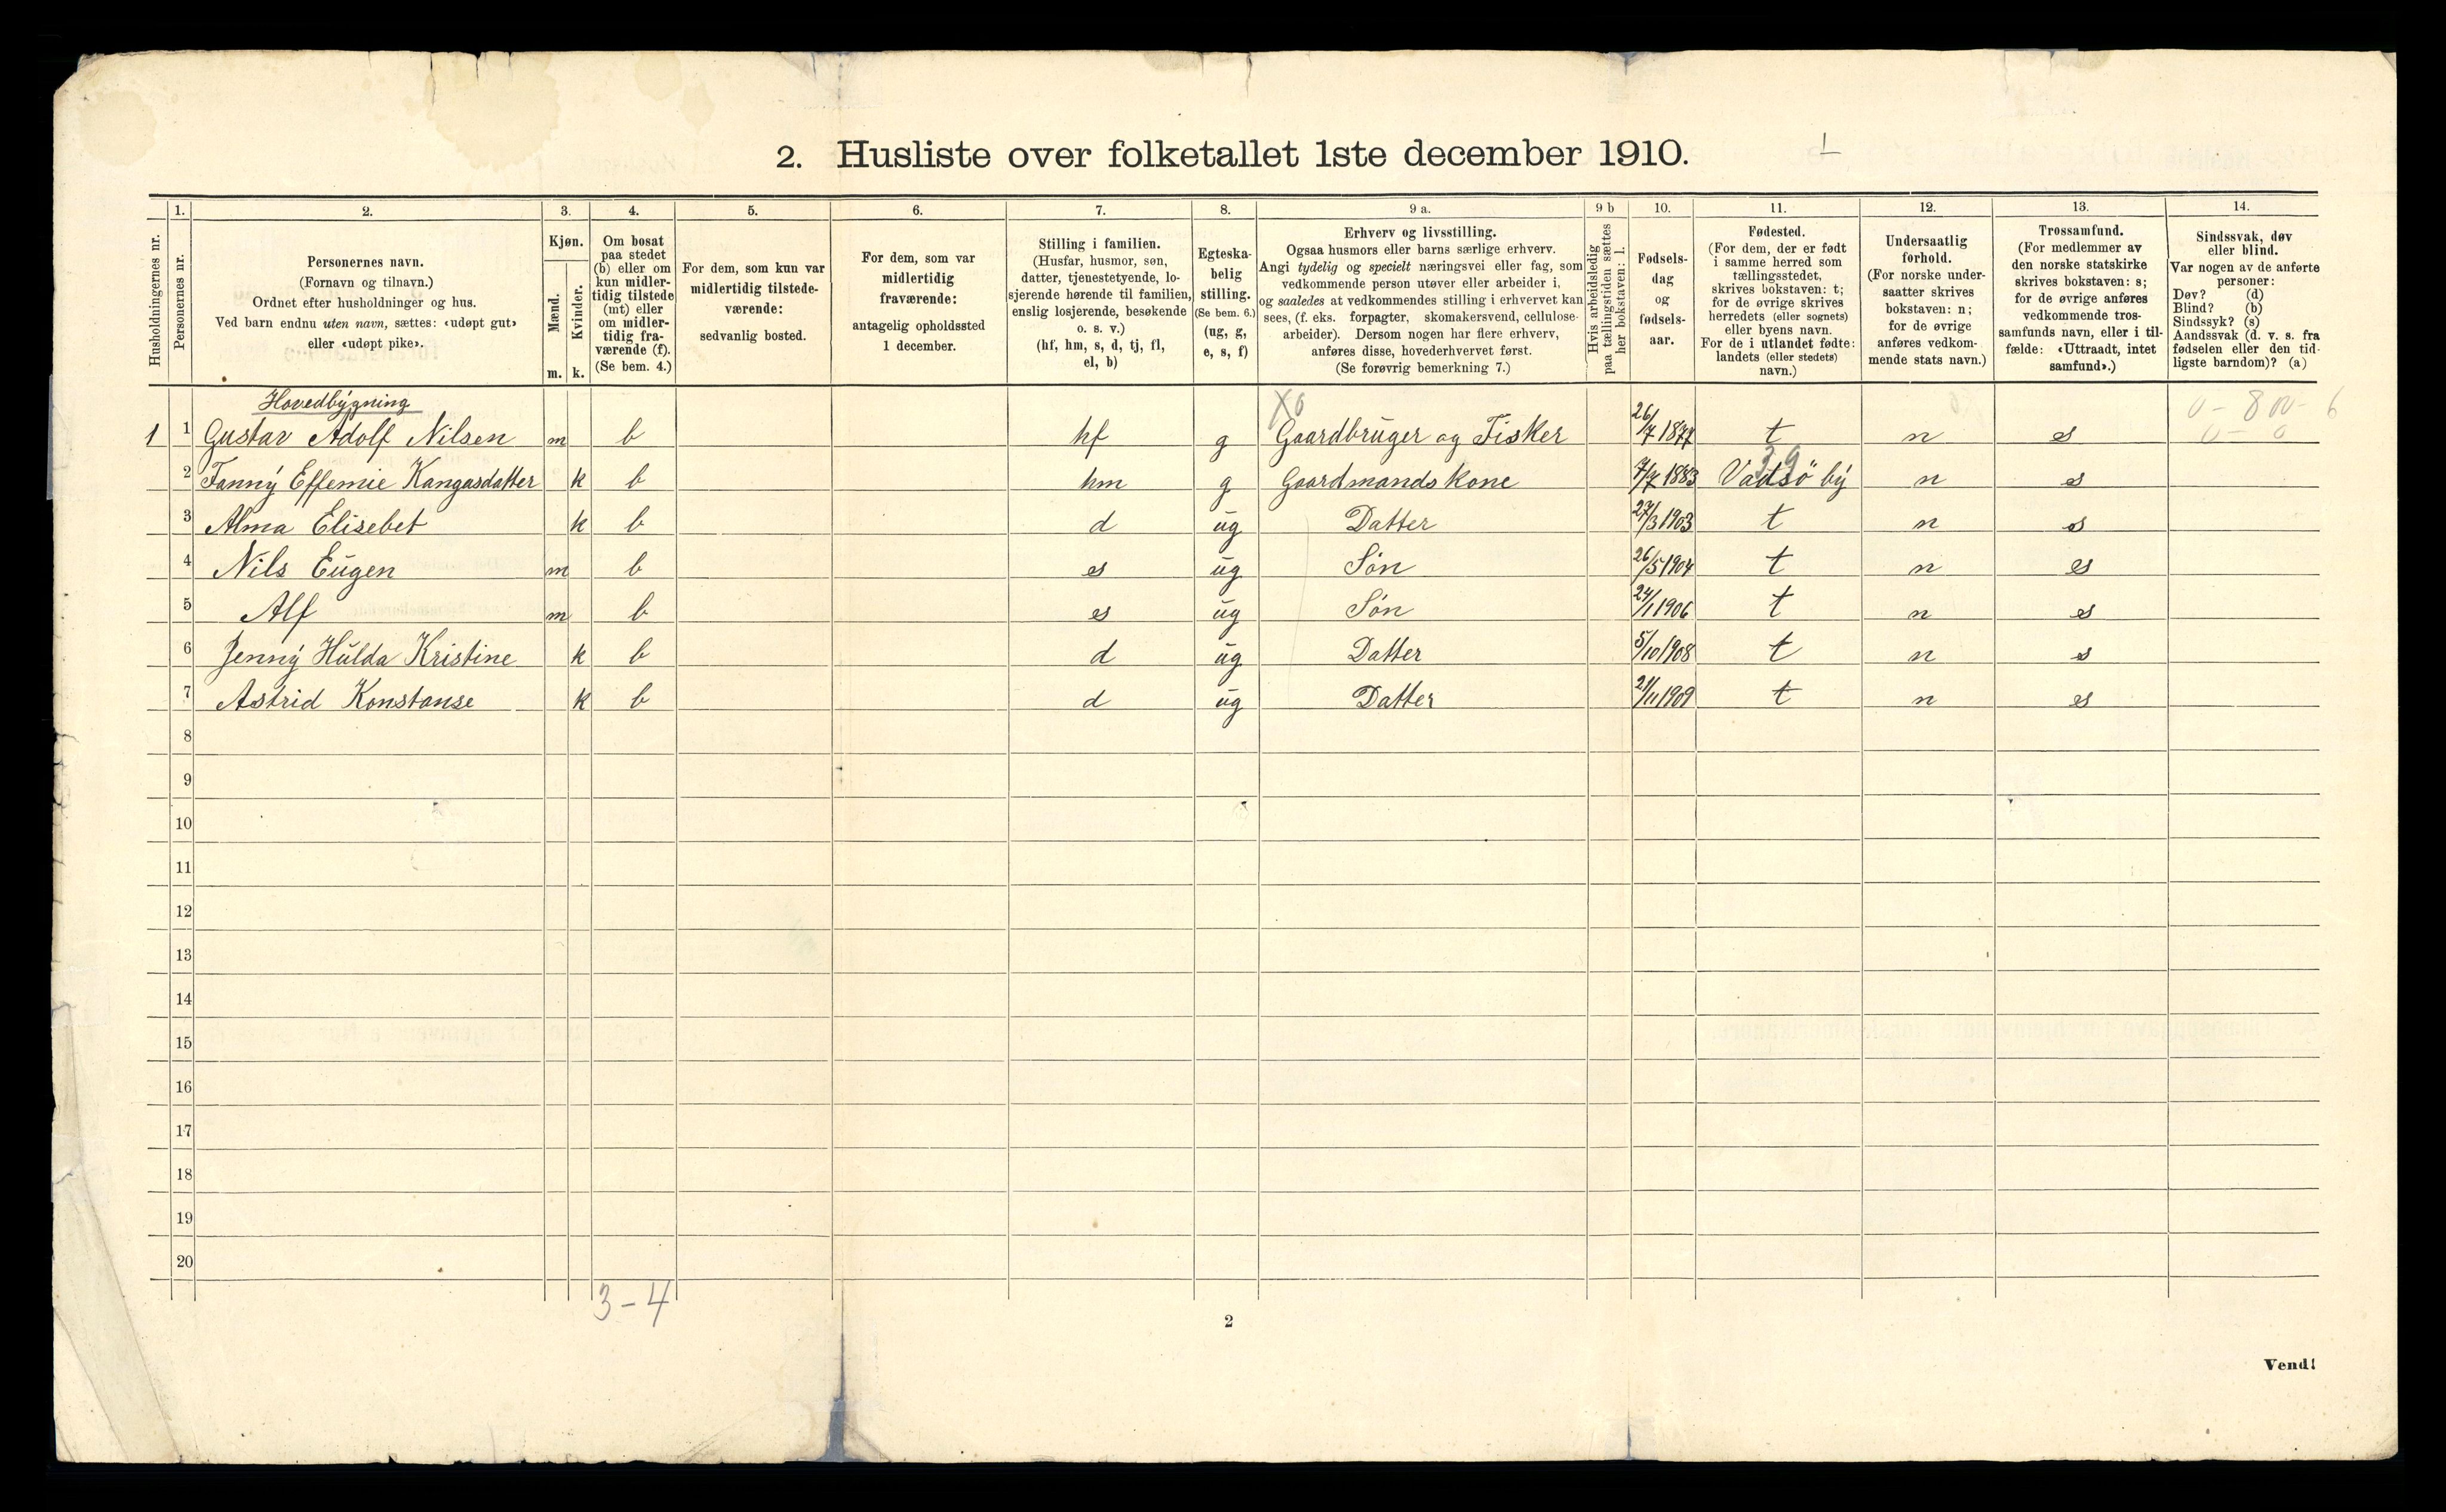 2. Husliste over folketallet 1ste december 1910.
1. 2. 3. 4. 5. 6. 7. 8. 9 a. 9 b 10. 11. 12. 13. 14.
Husholdningernes nr.
Personernes nr.
Personernes navn.
(Fornavn og tilnavn.)
Ordnet efter husholdninger og hus.
Ved barn endnu uten navn, sættes: «udøpt gut»
eller «udøpt pike».
Kjøn.
Mænd.
Kvinder.
m. k.
Om bosat
paa stedet
(b) eller om
kun midler-
tidig tilstede
(mt) eller
om midler-
tidig fra-
værende (f).
(Se bem. 4.)
For dem, som kun var
midlertidig tilstede-
værende:
sedvanlig bosted.
For dem, som var
midlertidig
fraværende:
antagelig opholdssted
1 december.
Stilling i familien.
(Husfar, husmor, søn,
datter, tjenestetyende, lo-
sjerende hørende til familien,
enslig losjerende, besøkende
o. s. v.)
(hf, hm, s, d, tj, fl,
el, b)
Egteska-
belig
stilling.
(Se bem. 6.)
(ug, g,
e, s, f)
Erhverv og livsstilling.
Ogsaa husmors eller barns særlige erhverv.
Angi tydelig og specielt næringsvei eller fag, som
vedkommende person utøver eller arbeider i,
og saaledes at vedkommendes stilling i erhvervet kan
sees, (f. eks. forpagter, skomakersvend, cellulose-
arbeider). Dersom nogen har flere erhverv,
anføres disse, hovederhvervet først.
(Se forøvrig bemerkning 7.)
Hvis arbeidsledig
paa tællingstiden sættes
her bokstaven: l.
Fødsels-
dag
og
fødsels-
aar.
Fødested.
(For dem, der er født
i samme herred som
tællingsstedet,
skrives bokstaven: t;
for de øvrige skrives
herredets (eller sognets)
eller byens navn.
For de i utlandet fødte:
landets (eller stedets)
navn.)
Undersaatlig
forhold.
(For norske under-
saatter skrives
bokstaven: n;
for de øvrige
anføres vedkom-
mende stats navn.)
Trossamfund.
(For medlemmer av
den norske statskirke
skrives bokstaven: s;
for de øvrige anføres
vedkommende tros-
samfunds navn, eller i til-
fælde: «Uttraadt, intet
samfund».)
Sindssvak, døv
eller blind.
Var nogen av de anførte
personer:
Døv? (d)
Blind? (b)
Sindssyk? (s)
Aandssvak (d. v. s. fra
fødselen eller den tid-
ligste barndom)? (a)
Hovedbygning
1 1 Gustav Adolf Nilsen m b hf g Gaardbruger og Fisker 26/7 1877 t n s
2 Fanny Effemie Kangasdatter k b hm g Gaardmandskone 7/7 1883 Vadsö by n s
3 Alma Elisebet k b d ug Datter 27/3 1903 t n s
4 Nils Eugen m b s ug Søn 26/5 1904 t n s
5 Alf m b s ug Søn 24/1 1906 t n s
6 Jenny Hulda Kristine k b d ug Datter 5/10 1908 t n s
7 Astrid Konstanse k b d ug Datter 21/11 1909 t n s
8
9
10
11
12
13
14
15
16
17
18
19
20
3-4
2
Vend!